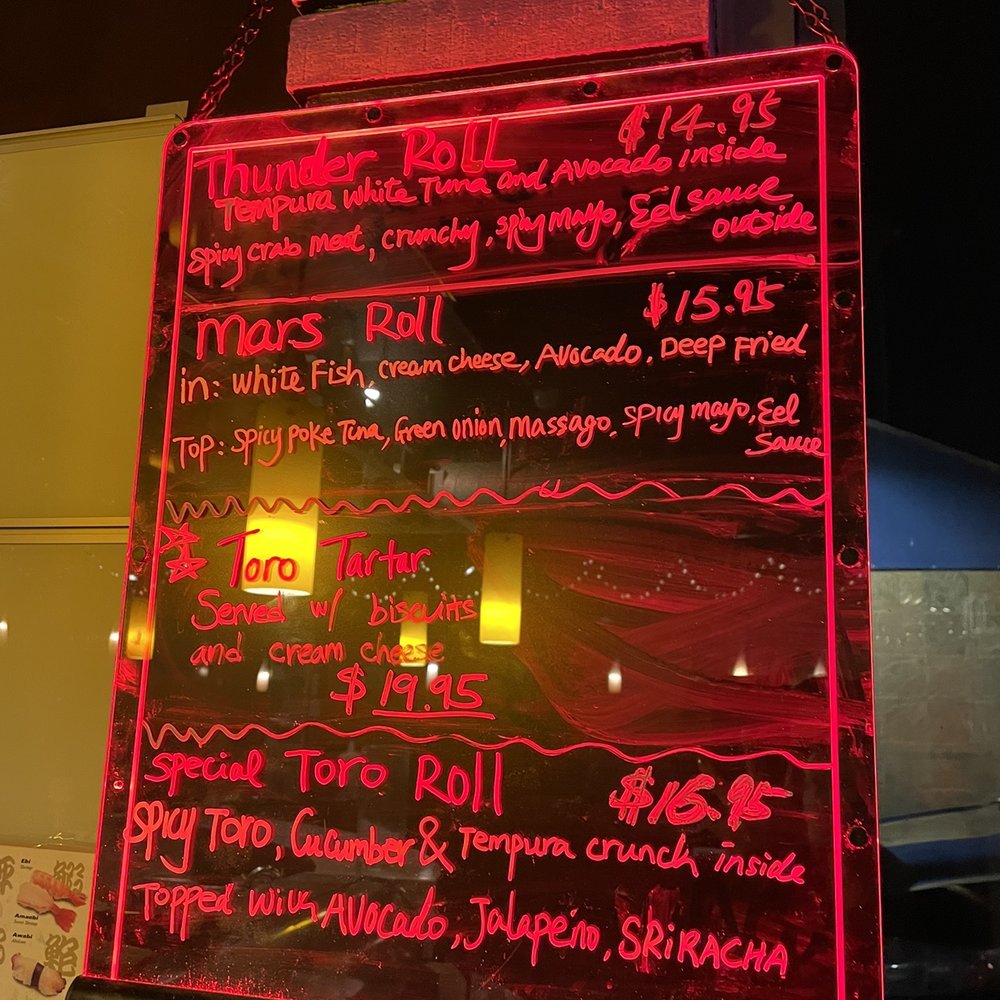 Thunder Roll $14.95
Tempura white Tuna and Avocado inside
spicy crab meat, crunchy, spicy mayo, Eel sauce
outside
Mars Roll $15.95
in: white Fish, cream cheese, Avocado. Deep Fried
Top: spicy poke Tuna, Green onion, Massago. spicy mayo, Eel
Sauce
Toro Tartar
Served w/ biscuits
and cream cheese
$19.95
special Toro Roll $16.95
spicy Toro, Cucumber & Tempura crunch inside
Topped with Avocado, Jalapeño, SRiRACHA
Ebi
Amaebi
Sweet Shrimp
Awabi